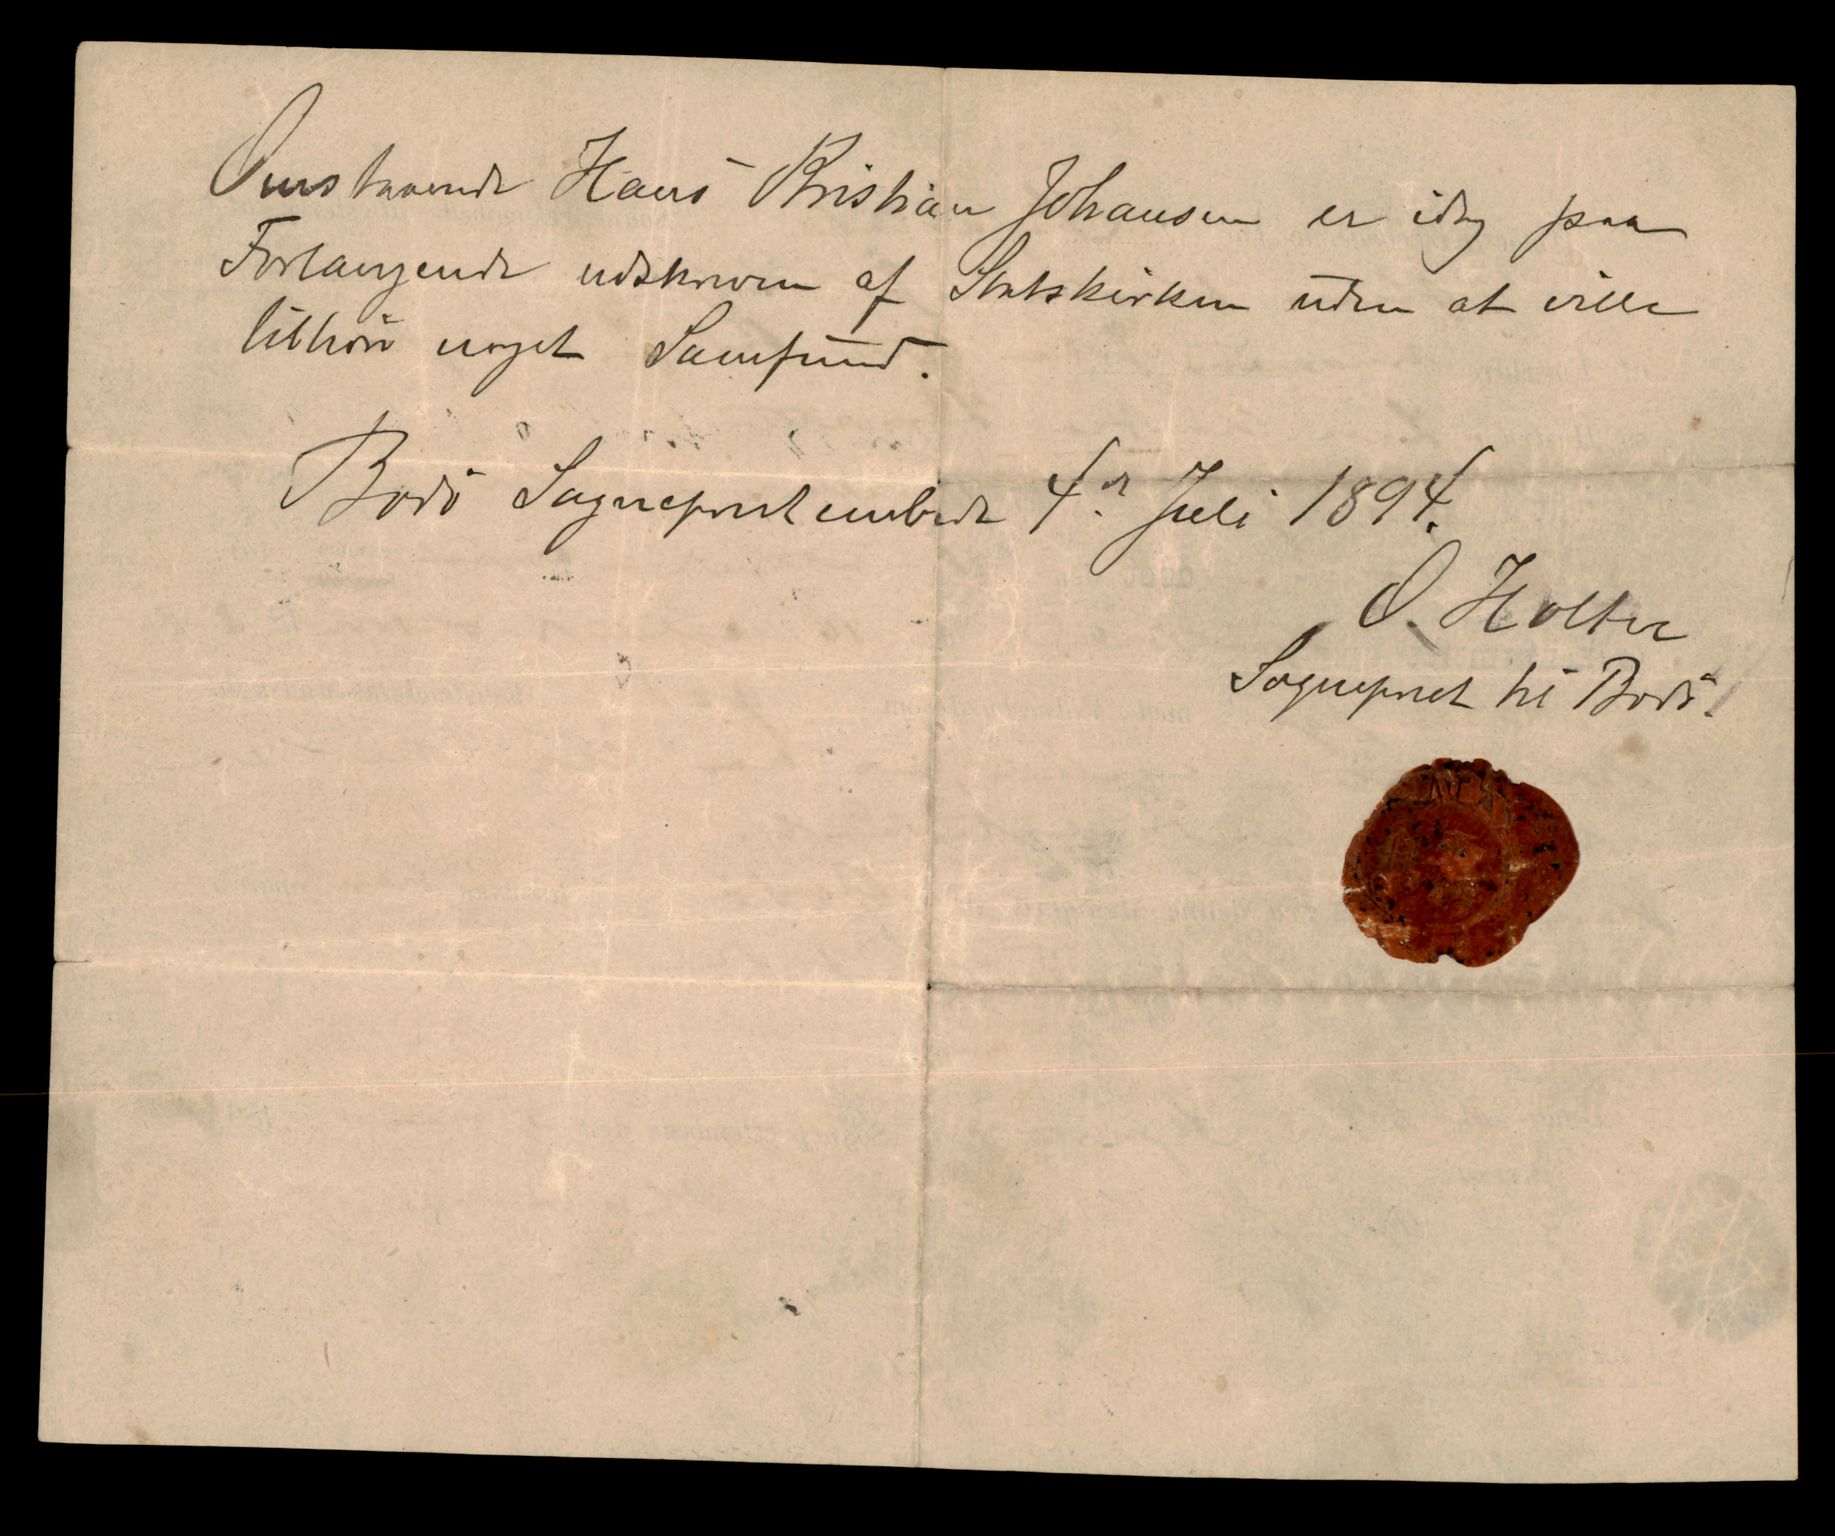 Omstaaende Hans Kristian Johansen er idag paa
Forlangende udskreven af Statskirken uden at ville
tilhøre noget Samfund.
Bodö Sogneprestembede 4de Juli 1894.
O. Holter
Sogneprest til Bodö.